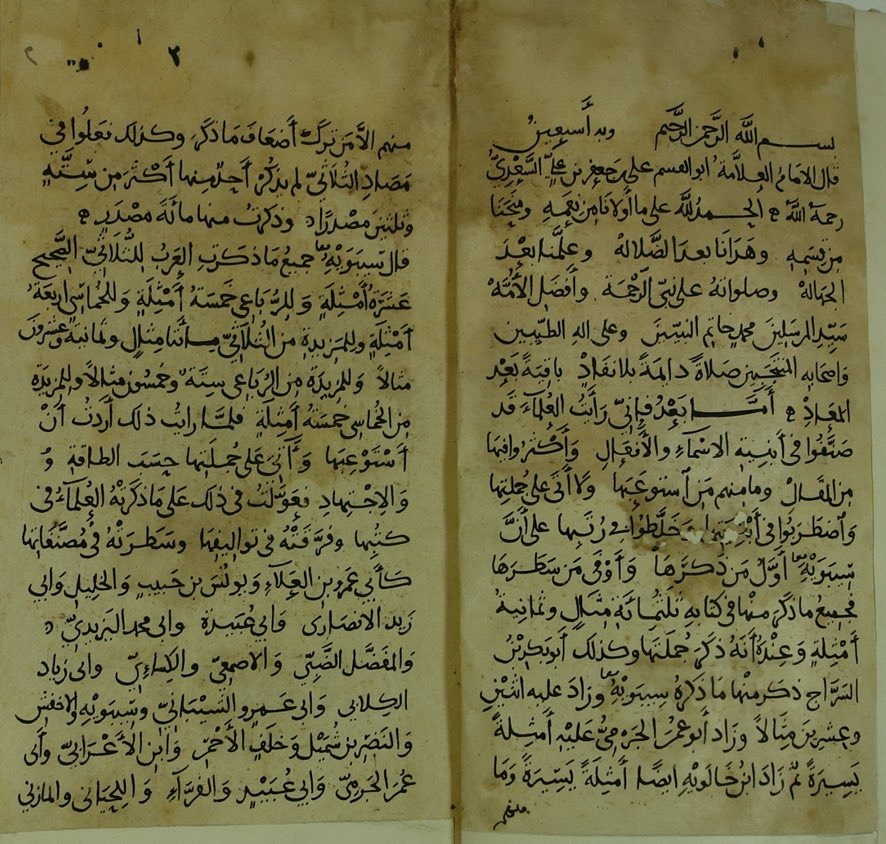 بسم الله الرحمن الرحيم وبه أستعين
قال الامام العلامة ابو القسم علي بن جعفر بن علي السَّعْدِيّ
رحمه الله الحمد لله على ما أولانا من نعمه ومنحنا
من قسمه وهدانا بعد الضلالة وعلمنا بعد
الجهالة وصلواته على نبي الرحمة وأفضل الأمة
سيد المرسلين محمد خاتم النبيين وعلى اله الطيبين
واصحابه المنتخبين صلاة دائمة بلا نفاد باقية بعد
المعاد أما بعد فإني رأيت العلماء قد
صنفوا في أبنية الاسماء والأفعال وأكثروا فيها
من المقال وما منهم من استوعبها ولا أتى على جملتها
وأضطربوا في وخلطوا في رتبها على أنَّ
سيبويه أول من ذكرها وأوفى من سطرها
فجميع ما ذكر منها في كتابه ثلثمائة مثال وثمانية
أمثلة وعنده أنه ذكر جملتها وكذلك أبو بكر بن
السراج ذكر منها ما ذكره سيبويه وزاد عليه اثنين
وعشرين مثالاً وزاد أبو عمر الجرمي عليه أمثلة
يسيرة ثم زاد ابن خالويه ايضا أمثلة يسيرة وما
منهم
٢
منهم الا من ترك أضعاف ما ذكر وكذلك فعلوا في
مصادر الثلاثي لم يذكر أحد منها أكثر من ستة
وثلثين مصدرًا وذكرت منها مائة مصدر
قال سيبويه جميع ما ذكرت العرب للثلاثي الصحيح
عشرة أمثلة وللرباعي خمسة أمثلة وللخماسي اربعة
أمثلة وللمزيدة من الثلاثي مائتا مثال وثمانية وعشرون
مثالاً وللمزيدة من الرباعي ستة وخمسون مثالاً وللمزيدة
من الخماسي خمسة أمثلة فلما رايت ذلك أردت أنْ
أستوعبها وآتي على جملتها حسب الطاقة و
والاجتهاد فعولت في ذلك على ما ذكرته العلماء في
كتبها وفرقته في تواليفها وسطرته في مصنفاتها
كأبي عمرو بن العلاء ويونس بن حبيب والخليل وابي
زيد الانصارى وابي عبيدة وابي محمد اليزيدي
والمفضل الضبي والاصمعي والكسائي وابي زياد
الكلابي وابي عمرو الشيباني وسيبويه والاخفش
والنضر بن شميل وخلف الأحمر وابن الأعرابي وأبى
عمر الجرمي وابي عبيد والفراء واللحياني والمازني